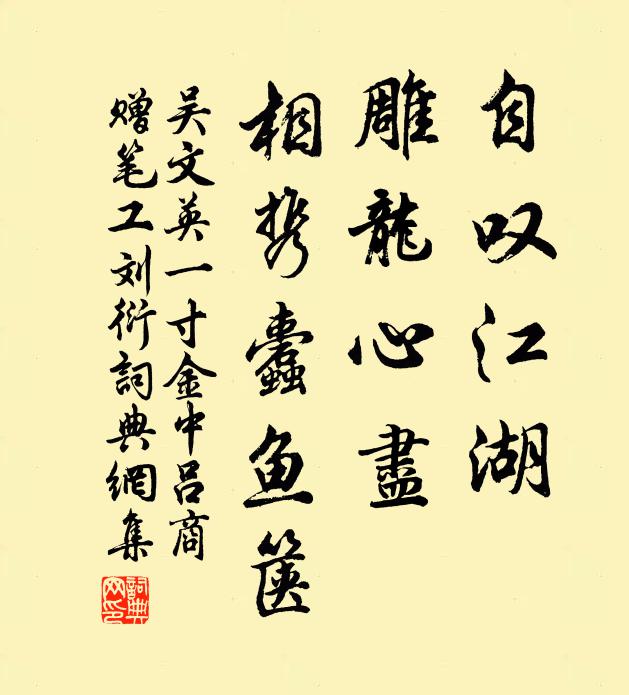 自叹江湖
雕龍心盡
相携蠹鱼箧
吴文英一寸金中吕商
赠笔工刘衍詞典網集
詞典网印